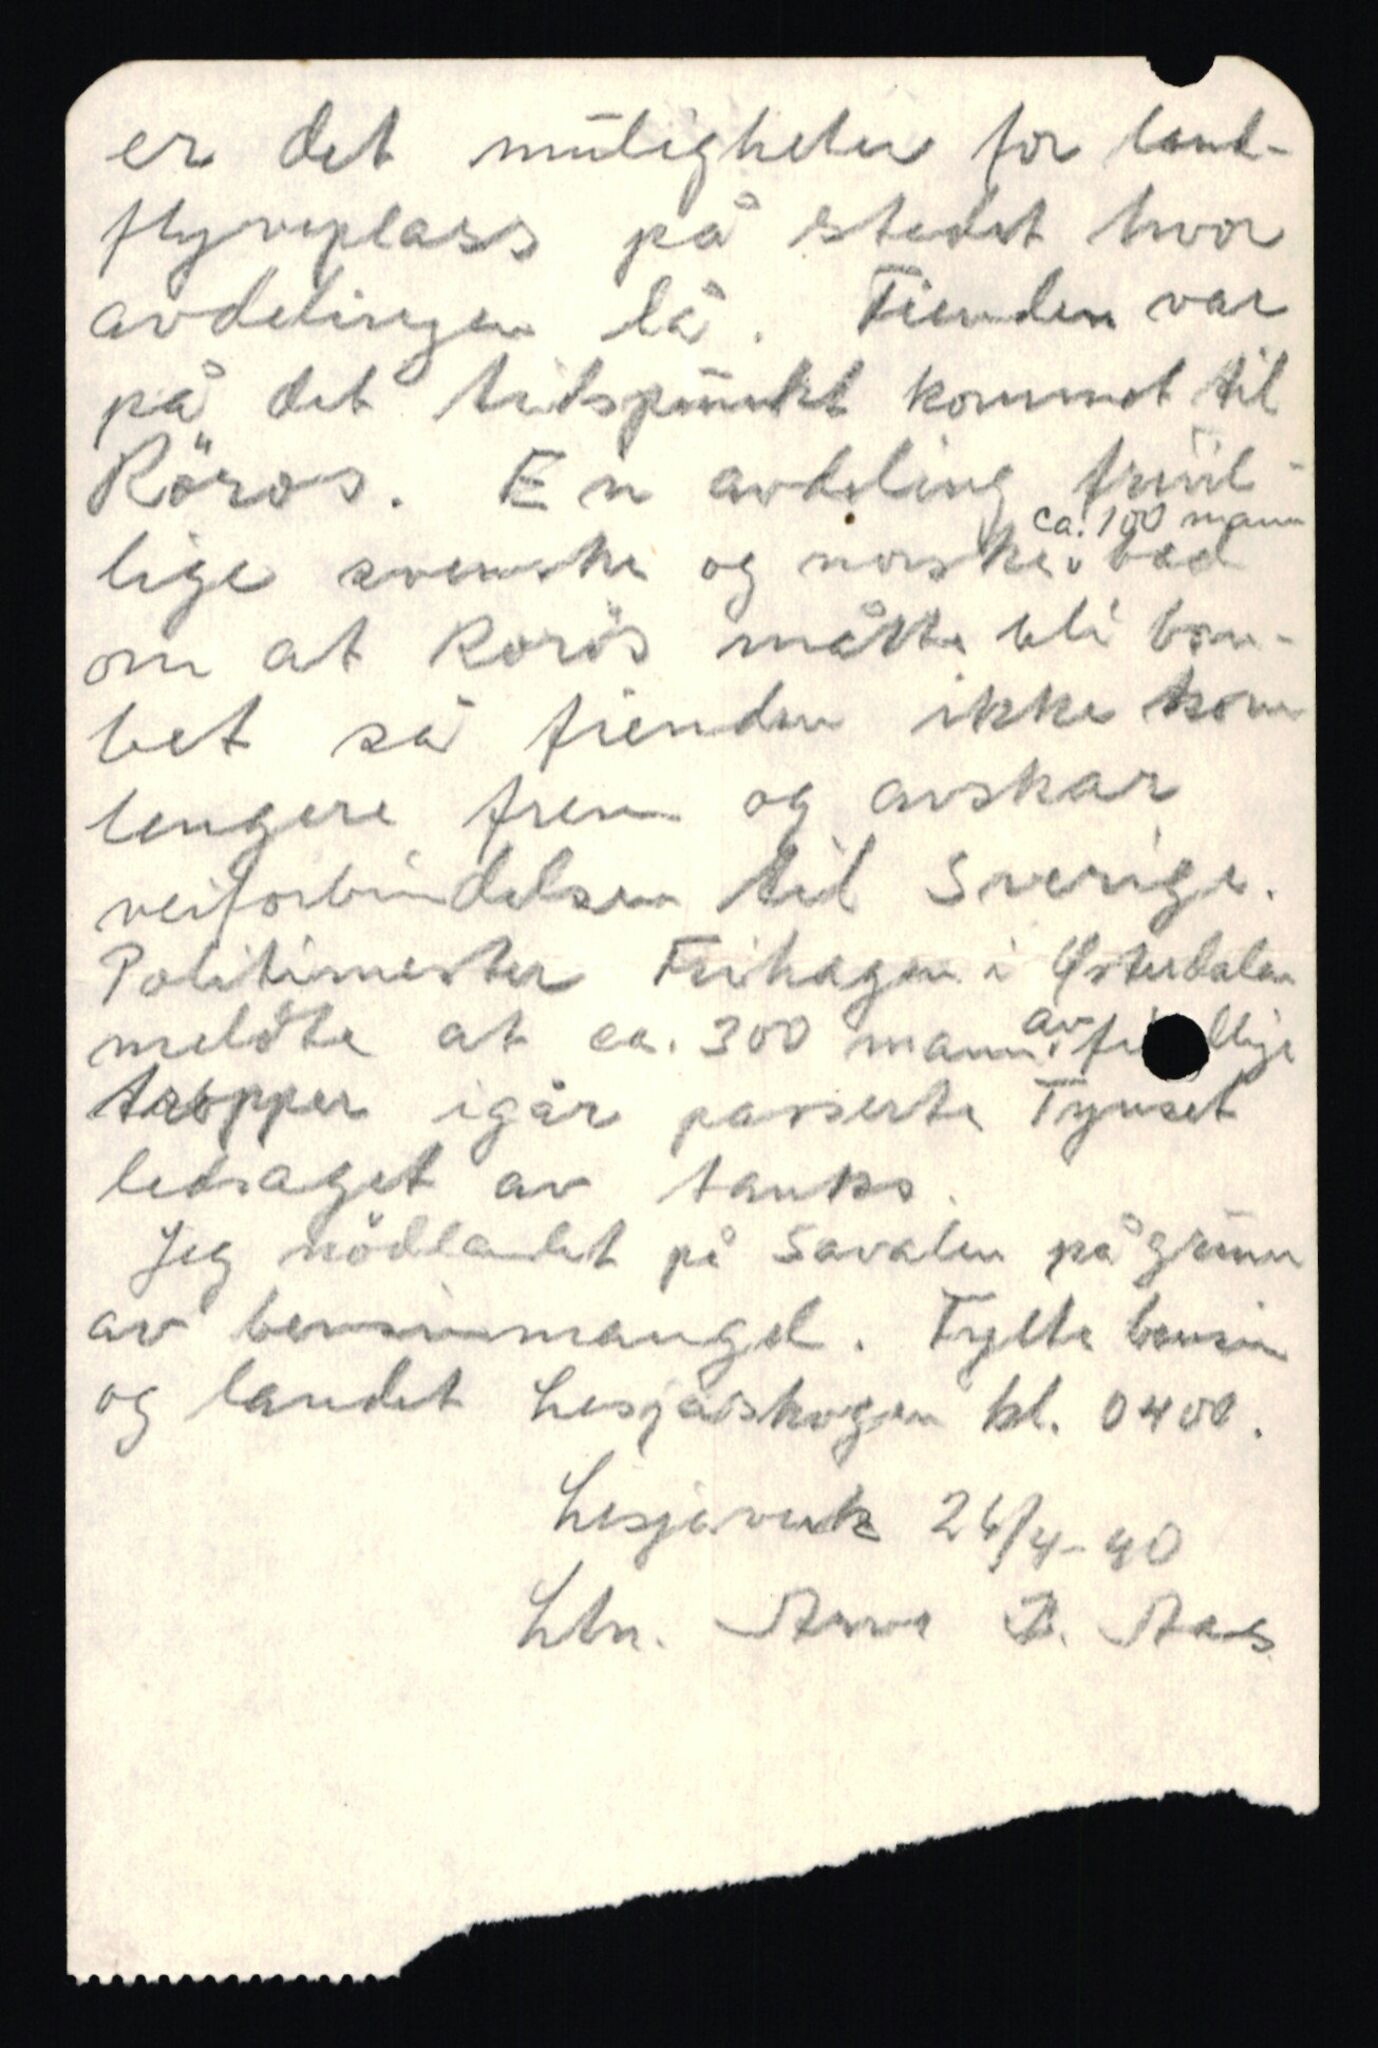 er det muligheter for land-
flyveplass på stedet hvor
avdelingen lå. Fienden var
på det tidspunkt kommet til
Röros. En avdeling frivil-
ca. 100 mann
lige svenske og norske bad
om at Rorös måtte bli bom-
bet så fienden ikke kom
lengere frem og avskar
veiforbindelsen til Sverige.
Politimester Frihagen i Østerdalen
meldte at ca. 300 mann av
tropper igår passerte Tynset
ledsaget av tanks.
Jeg nödlandet på Savalen på grunn
av bensinmangel. Fylte bensin
og landet Lesjaskogen kl. 0400.
Lesjaverk 26/4-40
Ltn. Aas